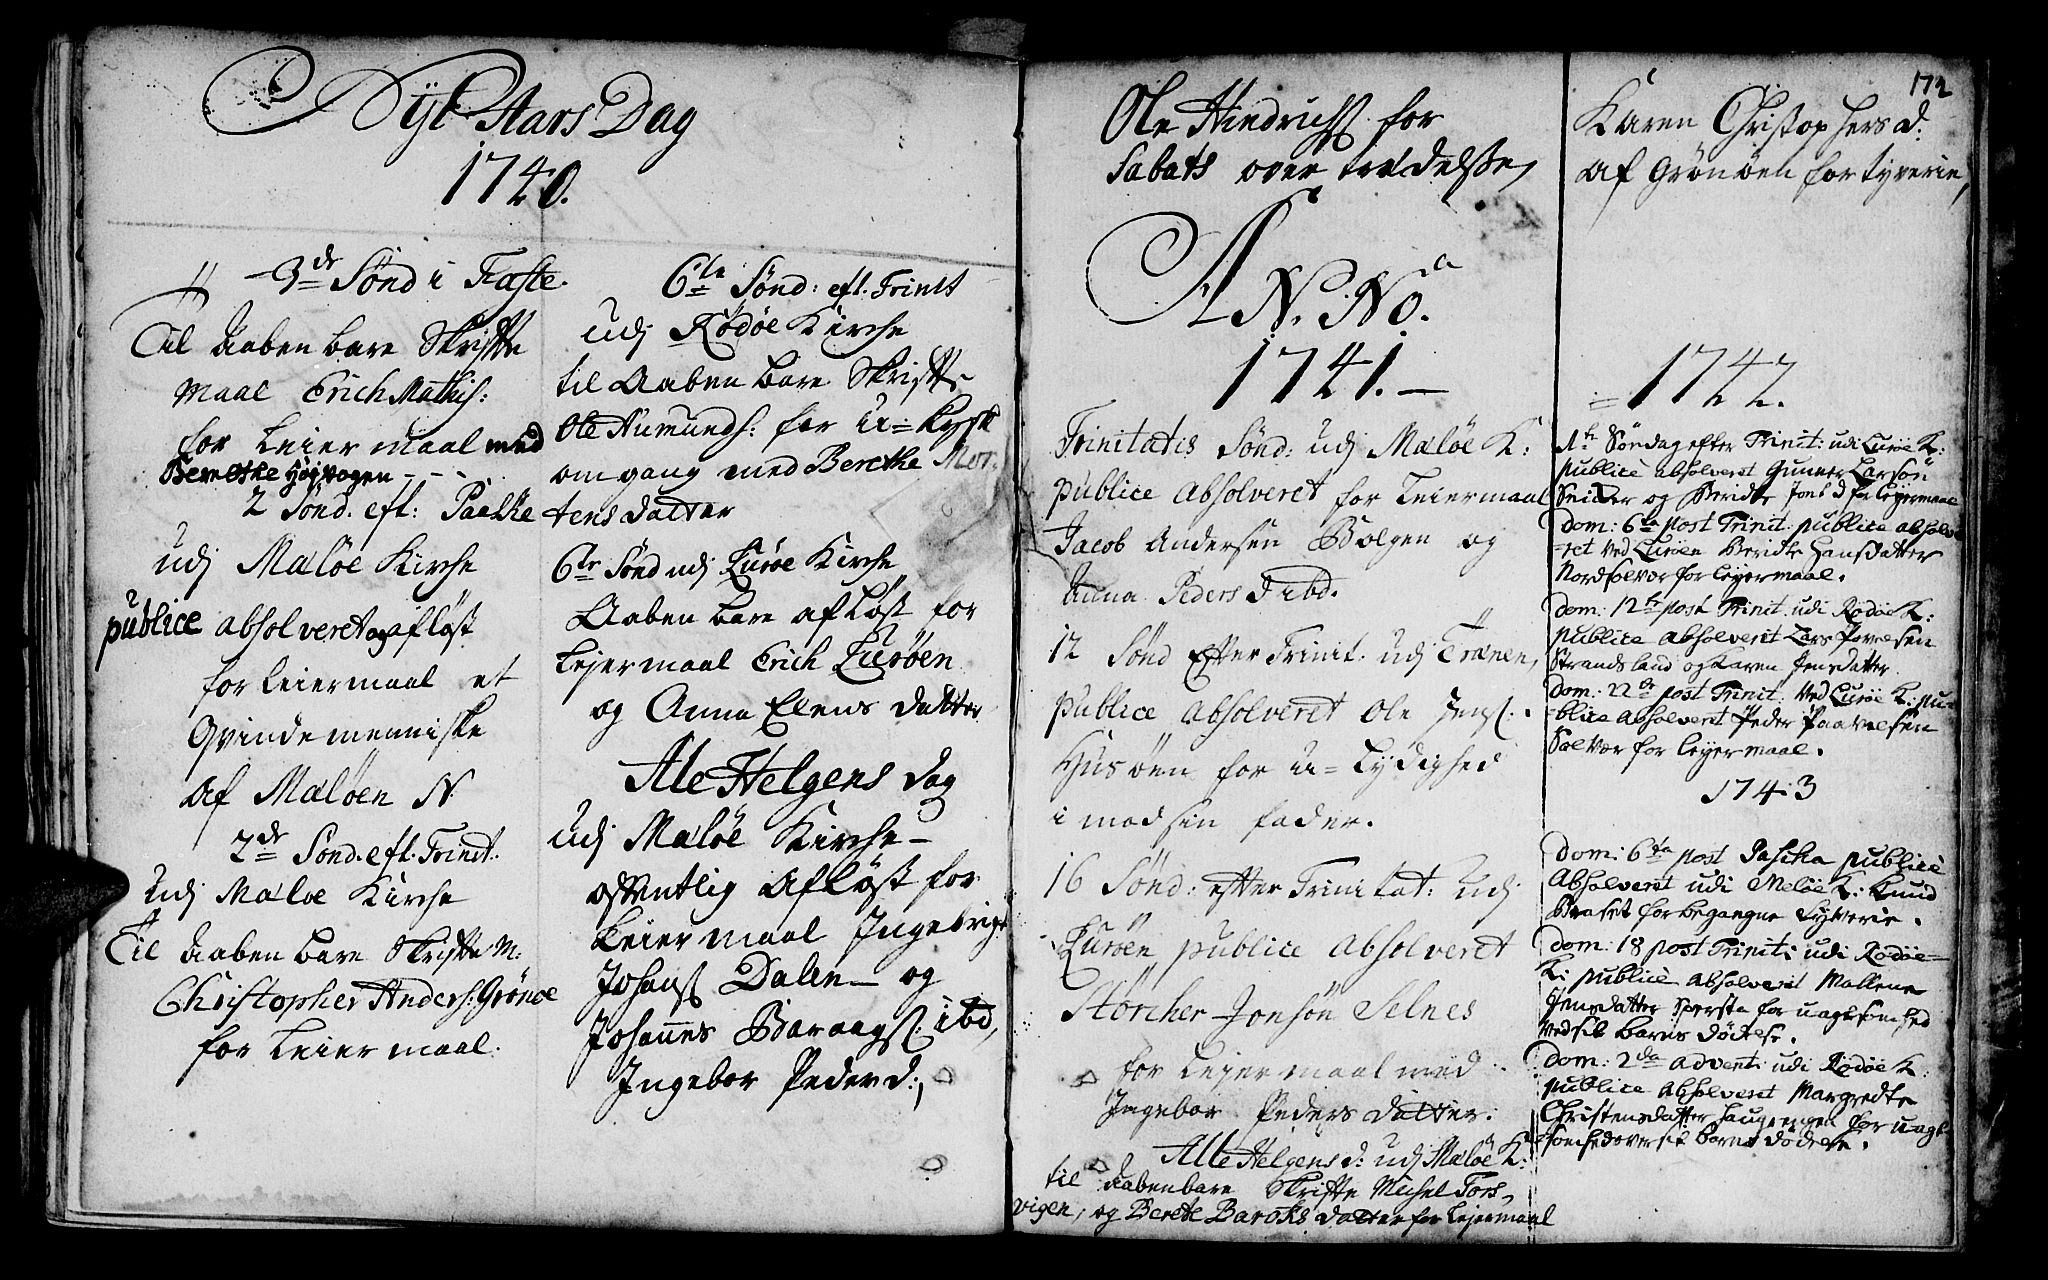 Nyt Aars Dag
1740.
3de Sønd i Faste.
Til Aabenbare Skrifte
maal Erich Mathis:
for Leiermaal med
Berethe Høyvogen - - -
2 Sønd. eft: Paaske
udj Meløe Kirche
publice absolveret og afløst
for Leiermaal et
Qvindemenniske
af Meløen N
2de Sønd. eft. Trinit:
udj Meløe Kirche
Til Aabenbare Skrifte M:
Christopher Anders: Grönöe
for Leiermaal.
6te Sønd: eft. Trinit
udj Rödöe Kirche
til Aabenbare Skrifte
Ole Aumunds: for U=kysk
omgang med Berethe Mor-
tens datter
6te Sønd udj Luröe Kirche
Aabenbare afløst for
Leiermaal Erich Luröen
og Anna Elens datter
Alle Helgens dag
udj Meløe Kirche
offentlig afløst for
Leiermaal Ingebrigt
Johans: Dalen og
Johannes Baraags: ibd,
Ingebor Peder d:,
Ole Hindrichs: for
Sabats overtrædelse,
ANNo
1741.
Trinitatis Sønd: udj Meløe K:
publice absolveret for Leiermaal
Jacob Andersen Bolgen og
Anna Peders D ibd.
12 Sønd Efter Trinit: udj Trænen,
publice absolveret Ole Jens:
Husöen for U=lydighed
imod sin fader.
16 Sønd: efter Trinitat: udj
Luröen publice absolveret
Störcher Jonsön Selnes
for Leiermaal med
Ingebor Peders datter.
Alle Helgens d: udj Meløe K:
til Aabenbare Skrifte Michel Tors-
vigen, og Berete Baroks datter for Leiermaal
172
Karen Christophers d:
af Grönöen for tyverie,
1742.
1te Søndag efter Trinit: udi Luröe K:
publicè absolveret Gunner Larsön
Snider og Berithe Jons d for Leyermaal
Dom: 6ta post Trinit. publice absolve
=ret ved Luröen Berithe Hansdatter
Nordsolvær for leyermaal.
Dom: 12te post Trinit. udi Rodöe K:
publice absolverit Lars Povelsen
Strandsland og Karen Jensdatter
Dom: 22de post Trinit. ved Luröe K: pu=
=blice absolveret Peder Paavelsen
Solvær for leyermaal.
1743
Dom: 6ta post Pascha publice
absolveret udi Meløe K: Knud
Braset for begangne tyverie.
Dom: 18 post Trinit: udi Rodöe=
K: publicè absolverit Mallene
Jensdatter Sperste for uagtsomhed
ved sit barns dödelse.
Dom: 2da Advent: udi Rodöe K:
publice absolveret Margrethe
Christensdatter Haugvogen for uagt=
somhed over sit barns dödelse.